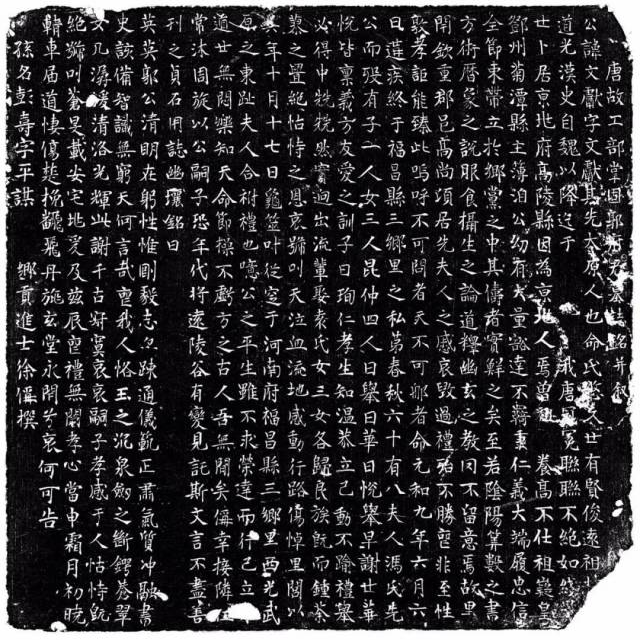 唐故工部掌固郭府君墓誌銘并叙
公諱文獻字文獻其先太原人也命氏 世有賢俊遠祖
道光漢史自魏以降迄于 我唐冠冕聯聯不絕如
世卜居京兆府高陵縣因為京兆人焉曾祖 養高不仕祖嶷皇
鄧州菊潭縣主簿洎公幼有大量豁達不羈責仁義大端履忠信
全節束帶立於鄉黨之中其儔者實鮮之矣至若陰陽筭數之書
方術曆象之說服食攝生之論道釋幽玄之教罔不留意焉故里
開欽重郡邑高尚頃居先夫人之感哀毀過禮殆不勝喪非至性
敦孝詎能臻此嗚呼不可問者天不可逃者命元和九年六月六
日遘疾終于福昌縣三鄉里之私第春秋六十有八夫人馮氏先
公而殁有子二人女三人昆仲四人曰舉曰華曰悅舉早謝世華
悅皆稟義方友愛之訓子曰珣仁孝生知溫恭立己動不踰禮舉
必得中兟兟然實迥出流輩娶袁氏女三女各歸良族既而鍾荼
蓼之疊絕怙恃之恩哀號叫天泣血流地感動行路傷悼里閭以
其年十月十七日龜筮叶從窆于河南府福昌縣三鄉里西光武
原之東趾夫人合祔禮也噫公之平生雖不求榮達而行己立
道世無悶樂知天命節操不虧方之古人吾無間矣偁幸接隣
常沐周旋以公嗣子恐年代將遠陵谷有變見託斯文言不盡善
刊之貞石用誌幽壤銘曰
英英郭公清明在躬性惟剛毅志多疎通儀範正肅氣質冲融書
史該備智識無窮天何言哉喪我人恪玉之沉泉劒之斷鍔蒼翠
女几潺湲清洛光輝此謝千古寂寞哀哀嗣子孝感于人怙恃既
絕號叫蒼旻載安宅地爰及茲辰喪禮無闕孝心當申霜月初曉
轜車屆道悽傷薤挽飜飛丹旐玄堂永閉兮哀何可告
孫名彭壽字平謀 鄉貢進士徐偁撰